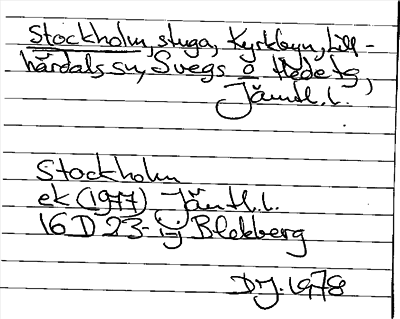 Stockholm, stuga, Kyrkbyn, Lill-
härdals sn, Svegs o Hede tg,
Jämtl.l.
Stockholm
ek (1977) Jämtl.l.
16D 23- ij Blekberg
DJ. 1978